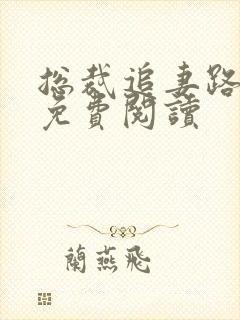 总裁追妻路
免費閱讀
蘭燕飛